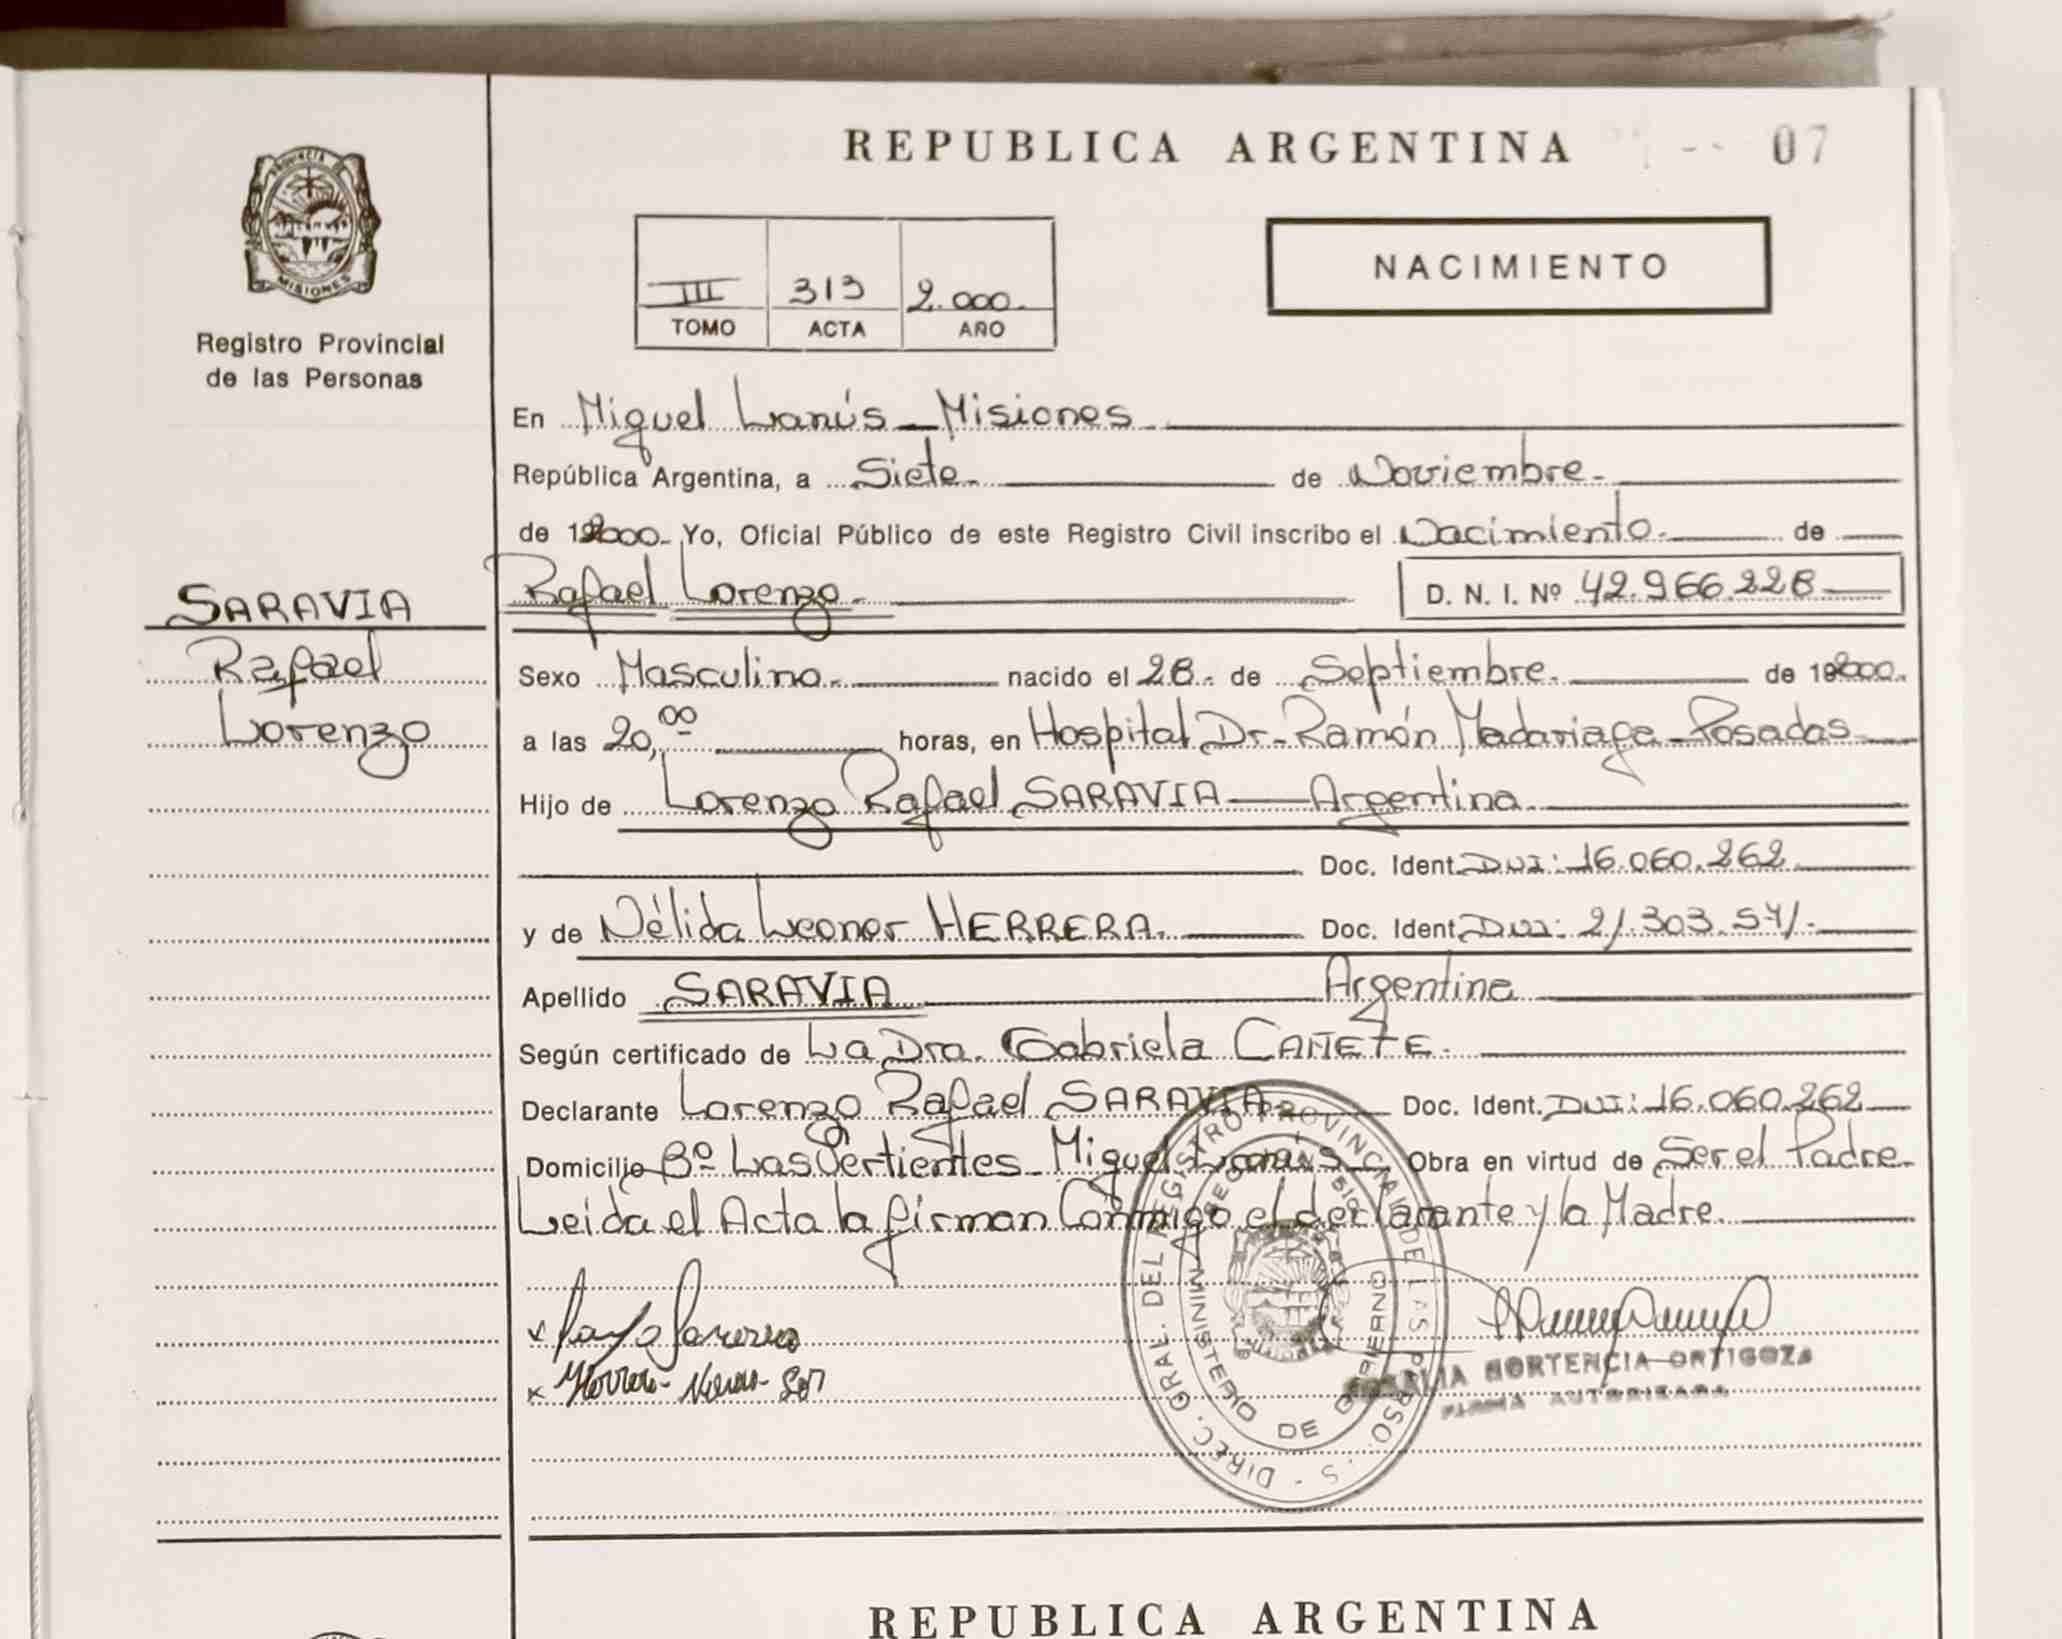 REPUBLICA ARGENTINA 07
PROVINCIA
MISIONES
Registro Provincial
de las Personas
III 313 2.000.
TOMO ACTA AÑO
NACIMIENTO
En Miguel Lanús - Misiones
República Argentina, a Siete. de Noviembre.
de 192000. Yo, Oficial Público de este Registro Civil inscribo el Nacimiento. de
Rafael Lorenzo. D. N. I. Nº 42.966.228
SARAVIA
Rafael
Lorenzo
Sexo Masculino. nacido el 28. de Septiembre. de 192000.
a las 20,00 horas, en Hospital Dr. Ramón Madariaga - Posadas
Hijo de Lorenzo Rafael SARAVIA — Argentina
Doc. Ident. DNI: 16.060.262
y de Nélida Leonor HERRERA. Doc. Ident. DNI: 21.303.571.
Apellido SARAVIA Argentina
Según certificado de La Dra. Gabriela CAÑETE.
Declarante Lorenzo Rafael SARAVIA Doc. Ident. DNI: 16.060.262
Domicilio Bº Las Vertientes - Miguel Lanús Obra en virtud de Ser el Padre
Leida el Acta la firman Conmigo el declarante y la Madre.
DIREC. GRAL. DEL REGISTRO PROVINCIAL DE LAS PERSO. S -
MINISTERIO DE GOBIERNO
HORTENCIA ORTIGOZA
FIRMA AUTORIZADA
REPUBLICA ARGENTINA